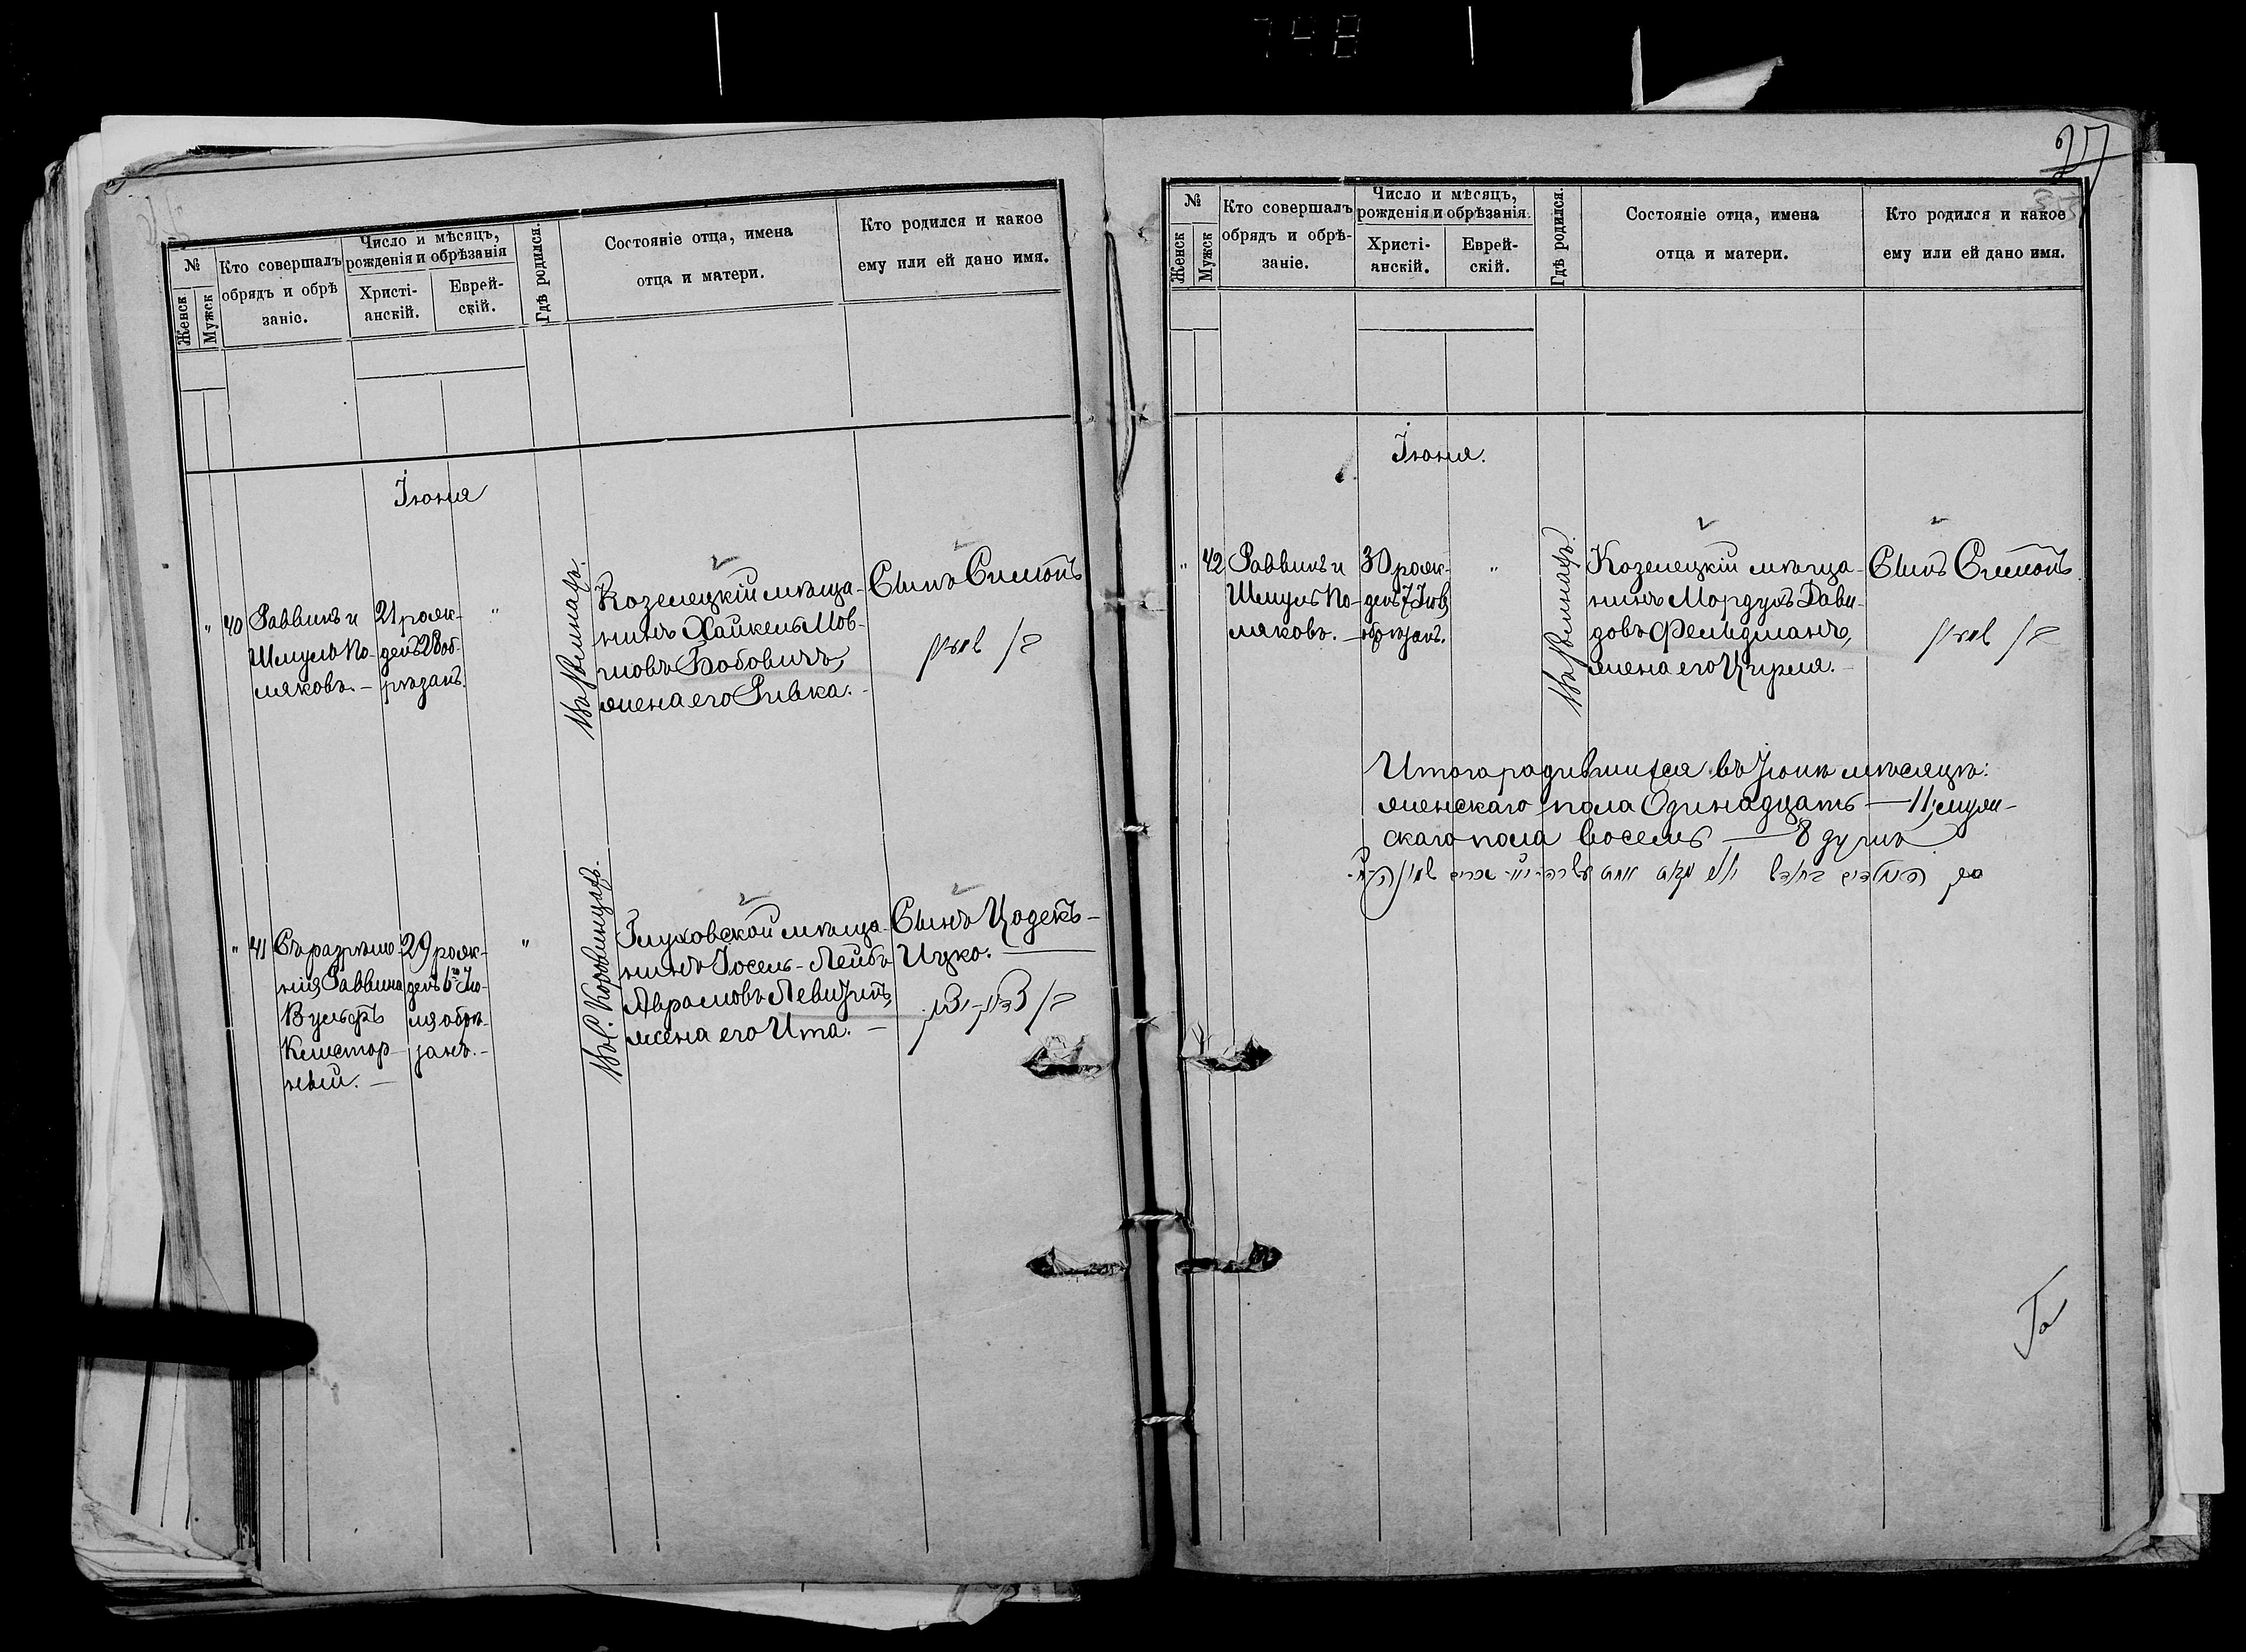 798
№
Женск
Мужск
Кто совершалъ
обрядъ и обрѣ
заніе.
Число и мѣсяцъ,
рожденія и обрѣзанія
Христі-
анскій.
Еврей-
скій.
Гдѣ родился.
Состояніе отца, имена
отца и матери.
Кто родился и какое
ему или ей дано имя.
Іюня
" 40
Раввинъ и
Шмуль По-
ляковъ. —
21 рож-
денъ 28 об-
рѣзанъ.
"
Козелецкій мѣща-
нинъ Хайкель Мов-
шовъ Бобовичъ,
жена его Ривка. -
Сынъ Симонъ
ז/ שמעון
" 41
Съ разрѣше-
нія Раввина
Вульфъ
29 рож-
денъ 6го Ію-
ля обрѣ-
занъ. -
"
Глуховской мѣща-
нинъ Іосель-Лейбъ
Аврамовъ Левитинъ,
жена его Ита. —
Сынъ Цодекъ-
Ицко.
ז/ צדוק-יצחק
27
№
Женск
Мужск
Кто совершалъ
обрядъ и обрѣ-
заніе.
Число и мѣсяцъ,
рожденія и обрѣзанія.
Христі-
анскій.
Еврей-
скій.
Гдѣ родился.
Состояніе отца, имена
отца и матери.
Кто родился и какое
ему или ей дано имя.
Іюня.
" 42
Раввинъ и
Шмуль По-
ляковъ. —
30 рож-
денъ 7 Іюля
обрѣзанъ.
"
Козелецкій мѣща-
нинъ Мордухъ Дави-
довъ Фельдманъ,
жена его Цирля. —
Сынъ Симонъ
ז/ שמעון
Итого родившихся въ Іюнѣ мѣсяцѣ:
женскаго пола Одинадцать — 11, муж-
скаго пола восемь — 8 душъ